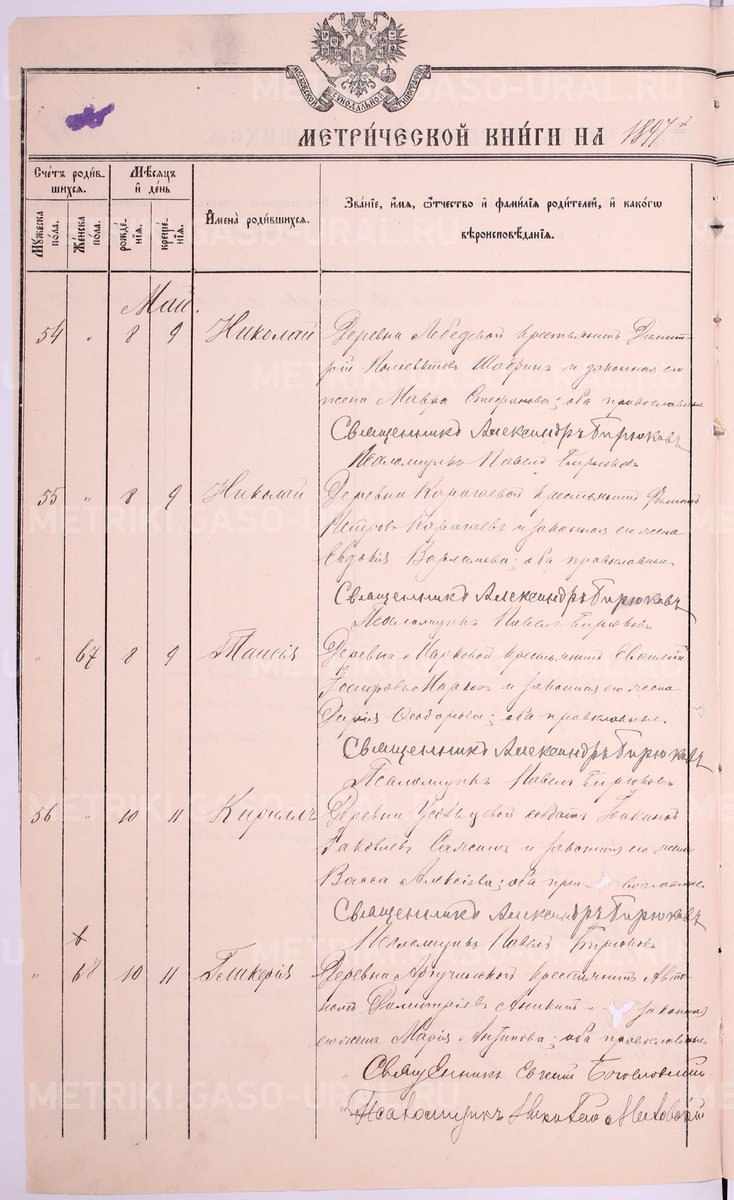 МОСКОВСКОЙ СѴНОДАЛЬНОЙ ТИПОГРАФІИ
МЕТРИ́ЧЕСКОЙ КНИ́ГИ НА 1897 й
Счетъ роди́вшихся.
Мѣсяцъ и день
Мужеска пола.
Же́нска пола.
рожденія.
крещенія.
И҆мена̀ роди́вшихся.
Зва́нїе, и҆́мя, ѻ҆́тчество и҆ фами́лїя роди́телей, и҆ како́гѡ
вѣроисповѣ́данїя.
Май.
54 " 8 9 Николай Деревни Лебедевой крестьянинъ Дмит-
рій Шабринъ и законная его
жена Мавра Стефанова; оба православные
Священникъ Александръ Бирюковъ
Псаломщикъ Павелъ Бирюковъ
55 " 8 9 Николай Деревни Карачевой крестьянинъ
Петровъ Карачевъ и законная его жена
Евдокія Варламова; оба православные.
Священникъ Александръ Бирюковъ
Псаломщикъ Павелъ Бирюковъ
" 67 8 9 Таисія Деревни Марковой крестьянинъ Евсигній
Марковъ и законная его жена
Дарія Ѳеодорова; оба православные.
Священникъ Александръ Бирюковъ
Псаломщикъ Павелъ Бирюковъ
56 " 10 11 Кириллъ Деревни солдатъ Іоакимъ
Яковлевъ и законная его жена
Васса Алексіева; оба православные.
Священникъ Александръ Бирюковъ
Псаломщикъ Павелъ Бирюковъ
" 68 10 11 Гликерія Деревни крестьянинъ Авто-
номъ Димитріевъ Аникинъ и законная
его жена Марія Антипова; оба православные.
Священникъ Евгеній Богословскій
Псаломщикъ Николай
METRIKI.GASO-URAL.RU